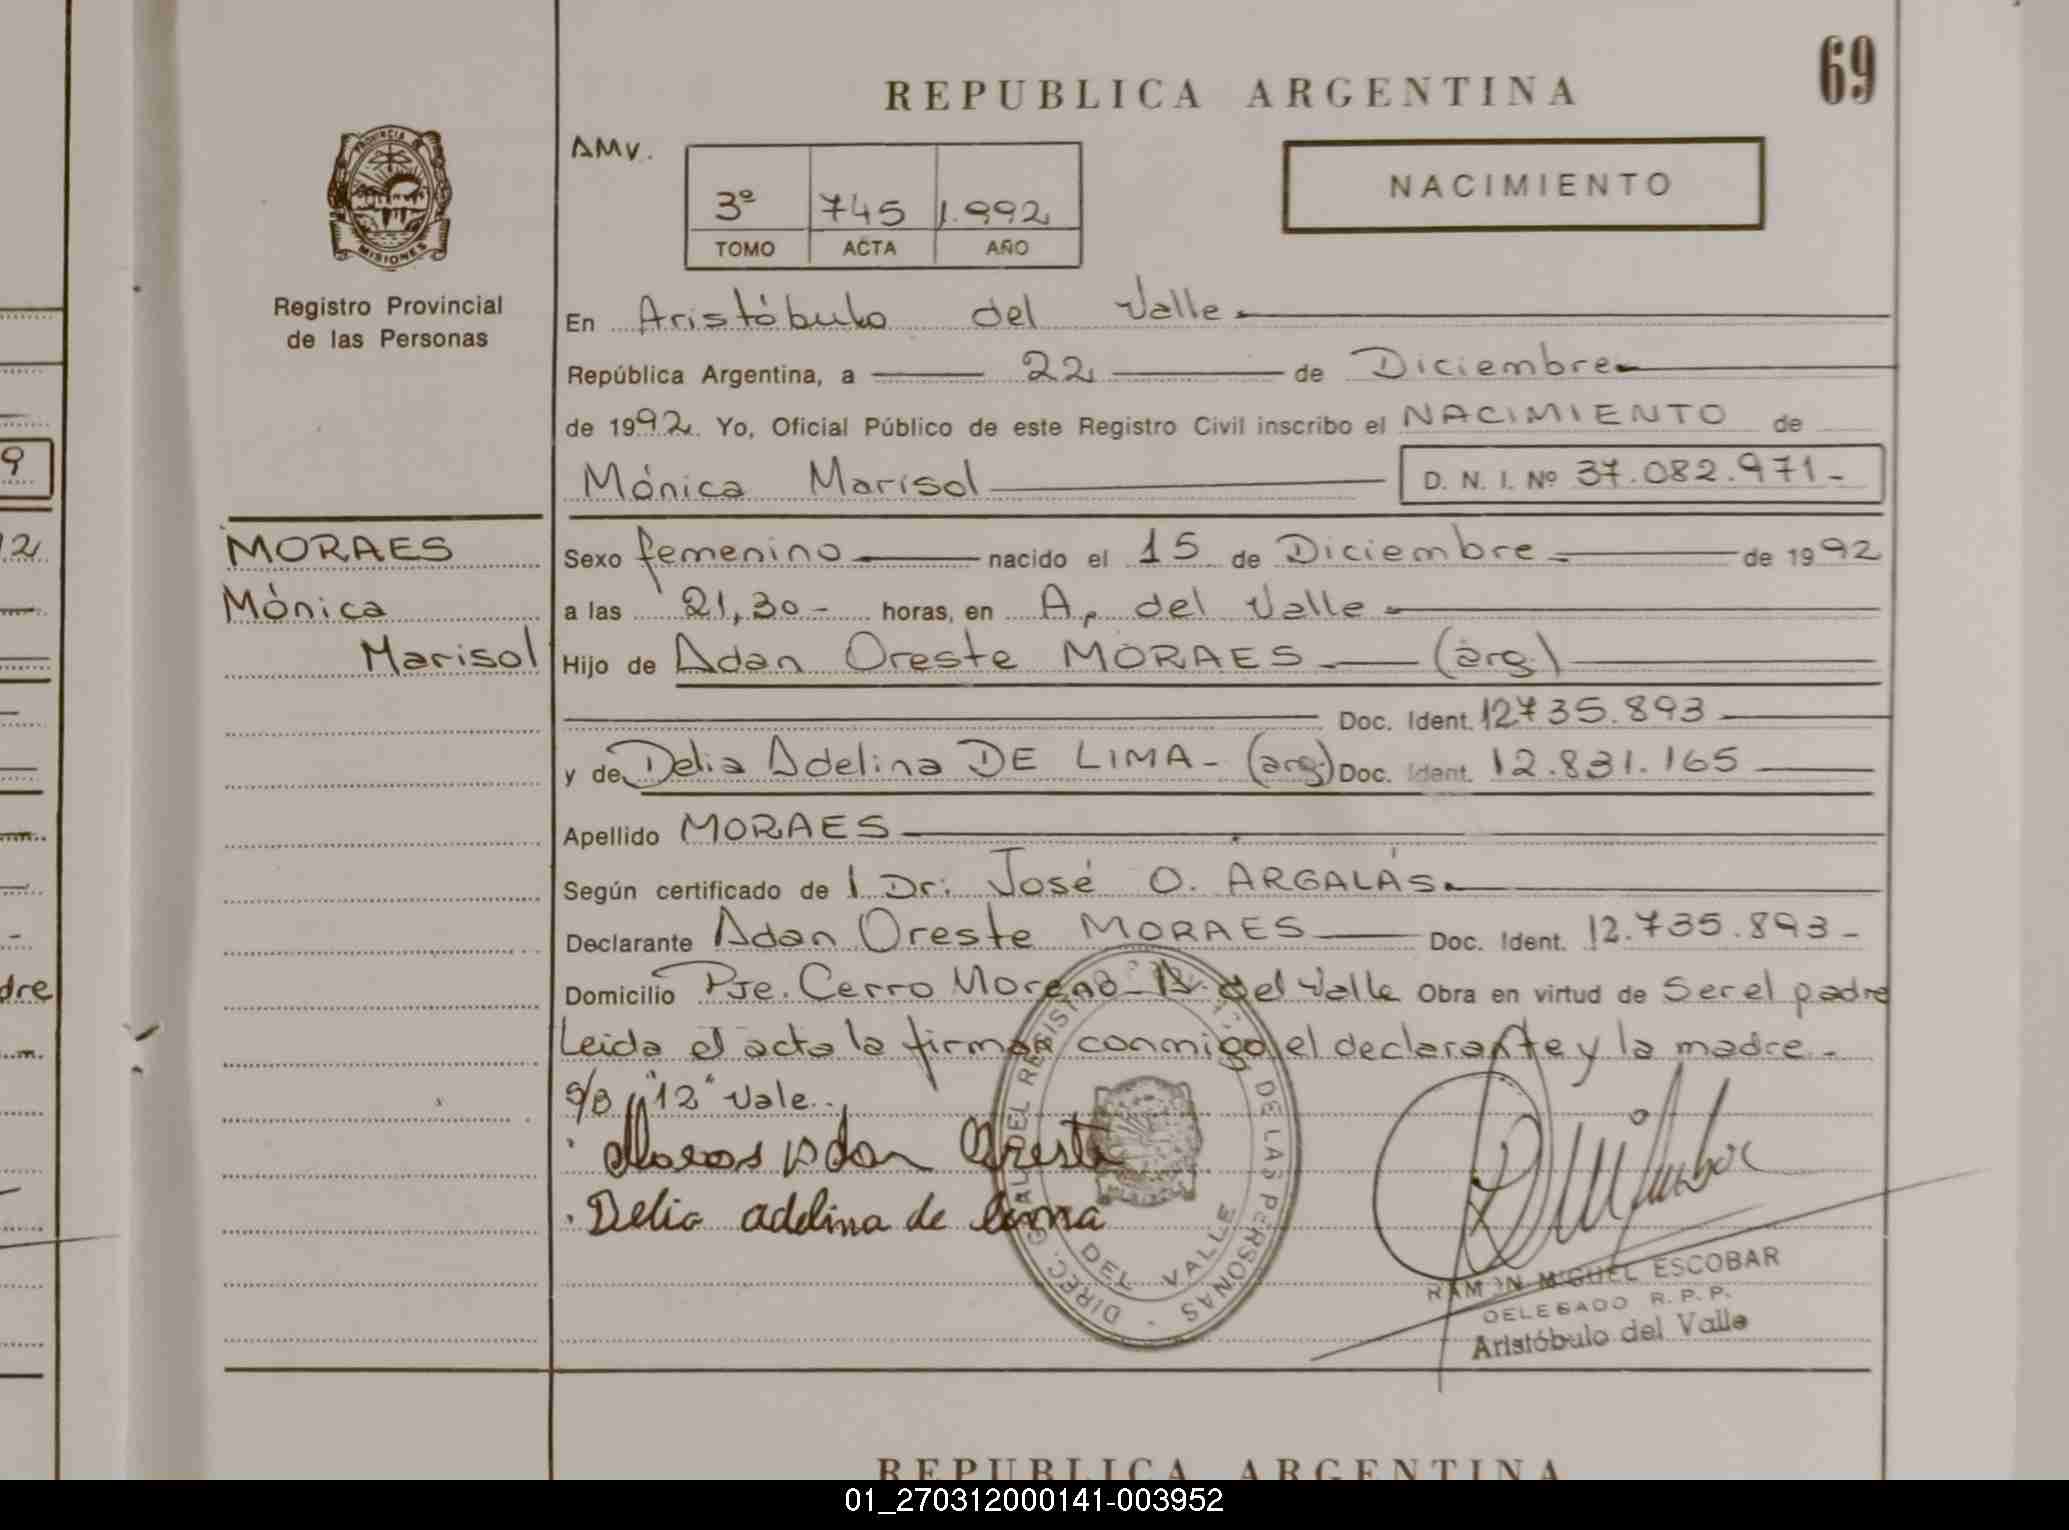 REPUBLICA ARGENTINA
69
AMV.
3º 745 1.992
TOMO ACTA AÑO
NACIMIENTO
PROVINCIA DE
MISIONES
Registro Provincial
de las Personas
En Aristóbulo del Valle
República Argentina, a 22 de Diciembre
de 1992 Yo, Oficial Público de este Registro Civil inscribo el NACIMIENTO de
Mónica Marisol D. N. I. Nº 37.082.971-
MORAES
Mónica
Marisol
Sexo femenino nacido el 15 de Diciembre de 1992
a las 21,30- horas, en A. del Valle
Hijo de Adan Oreste MORAES (arg)
Doc. Ident. 12735.893
y de Delia Adelina DE LIMA- (arg) Doc. Ident. 12.831.165
Apellido MORAES
Según certificado de l Dr: José O. ARGALÁS
Declarante Adan Oreste MORAES Doc. Ident. 12.735.893-
Domicilio Pje. Cerro Moreno A. del Valle Obra en virtud de Ser el padre
Leida el acta la firman conmigo el declarante y la madre.-
S/B "12" Vale.
Adan Oreste
Delia adelina de lima
DIREC. GRAL DEL REGISTRO DE LAS PERSONAS
DEL VALLE
RAMON MIGUEL ESCOBAR
DELEGADO R. P. P.
Aristóbulo del Valle
9
12
dre
m.
REPUBLICA ARGENTINA
01_270312000141-003952